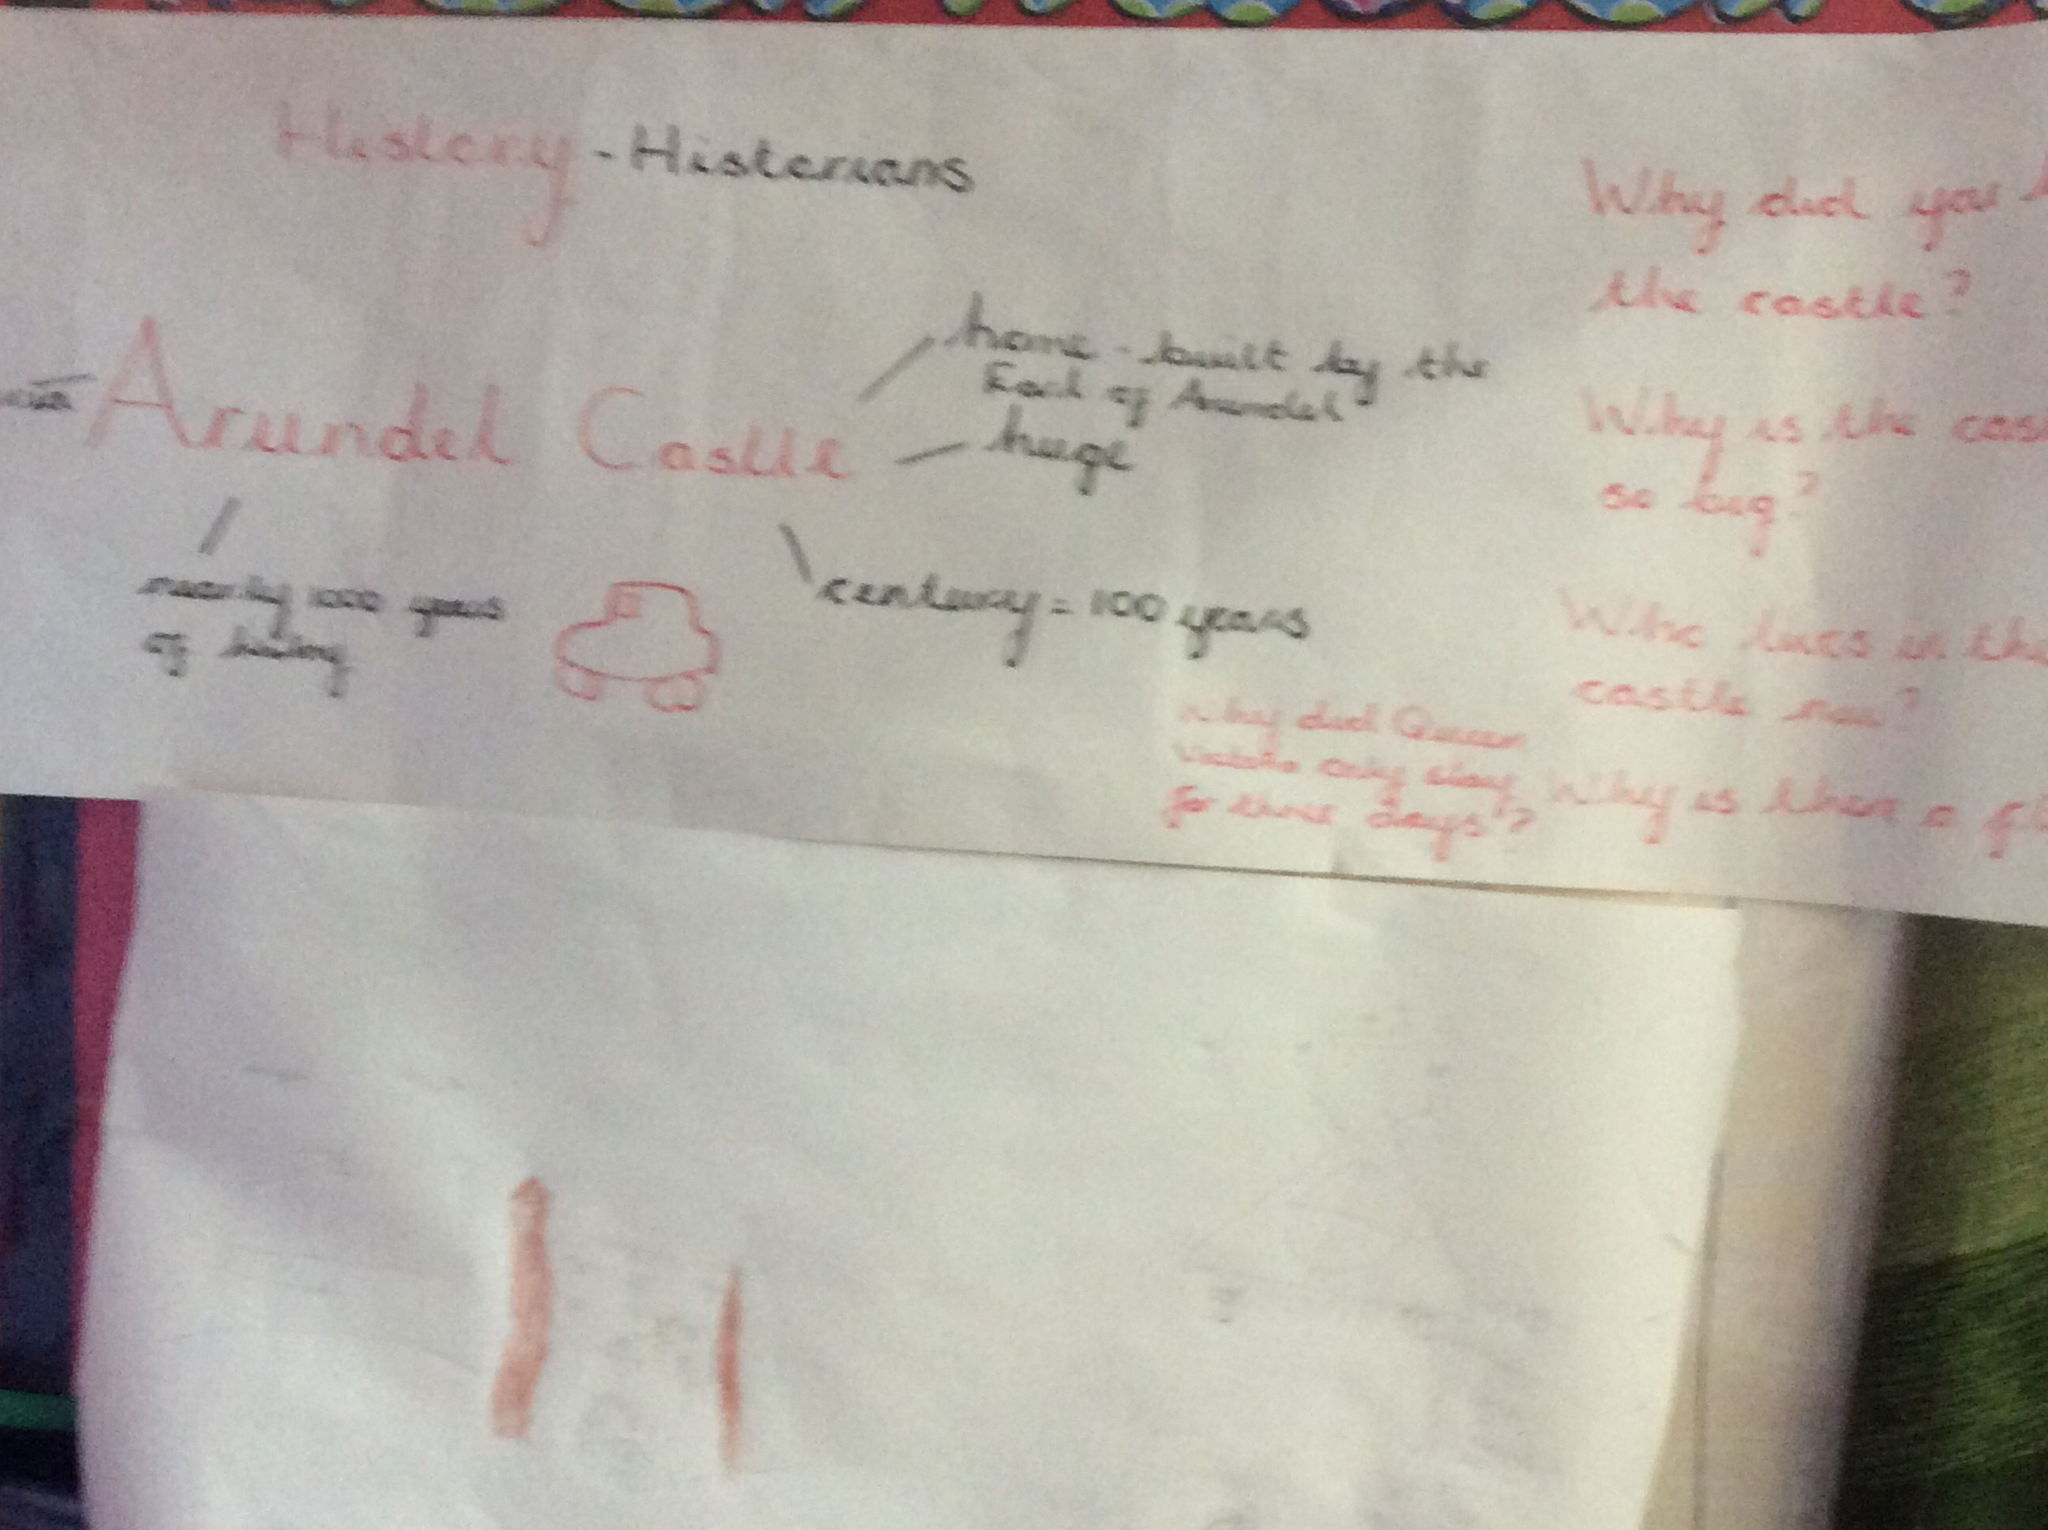 History - Historians
Arundel Castle
home - built by the
Earl of Arundel
huge
nearly 1000 years
of history
century = 100 years
Why did you
the castle?
Why is the
so big?
Who lives in the
castle now?
Why did Queen
Victoria only stay
for three days?
Why is there a